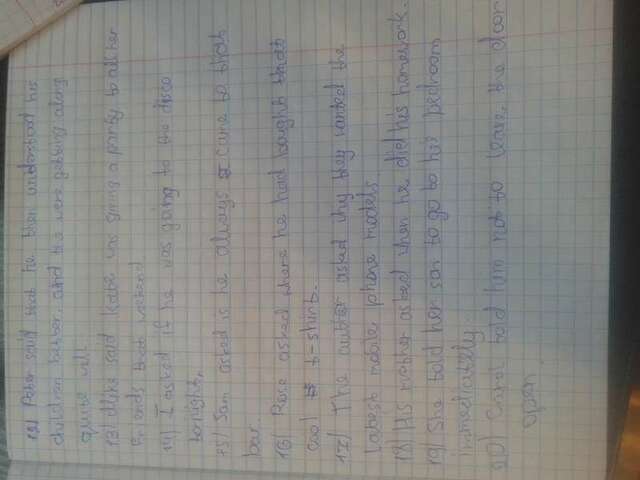 12) Peter said that he then understood his
children better and he were getting along
quite well.
13) Mike said Katie was giving a party to all her
friends that weekend
14) I asked if he was going to the disco
tonight,
15) Sam asked is he always came to that
bar
16 Rose asked where he had bought that
cool t-shirt.
17) The author asked why they wanted the
latest mobile phone models.
18) His mother asked when he did his homework.
19) She told her son to go to his bedroom
immediately.
20) told him not to leave the door
open